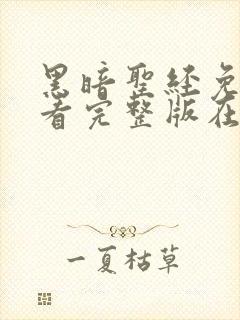 黑暗聖經免
看完整版在
一夏枯草